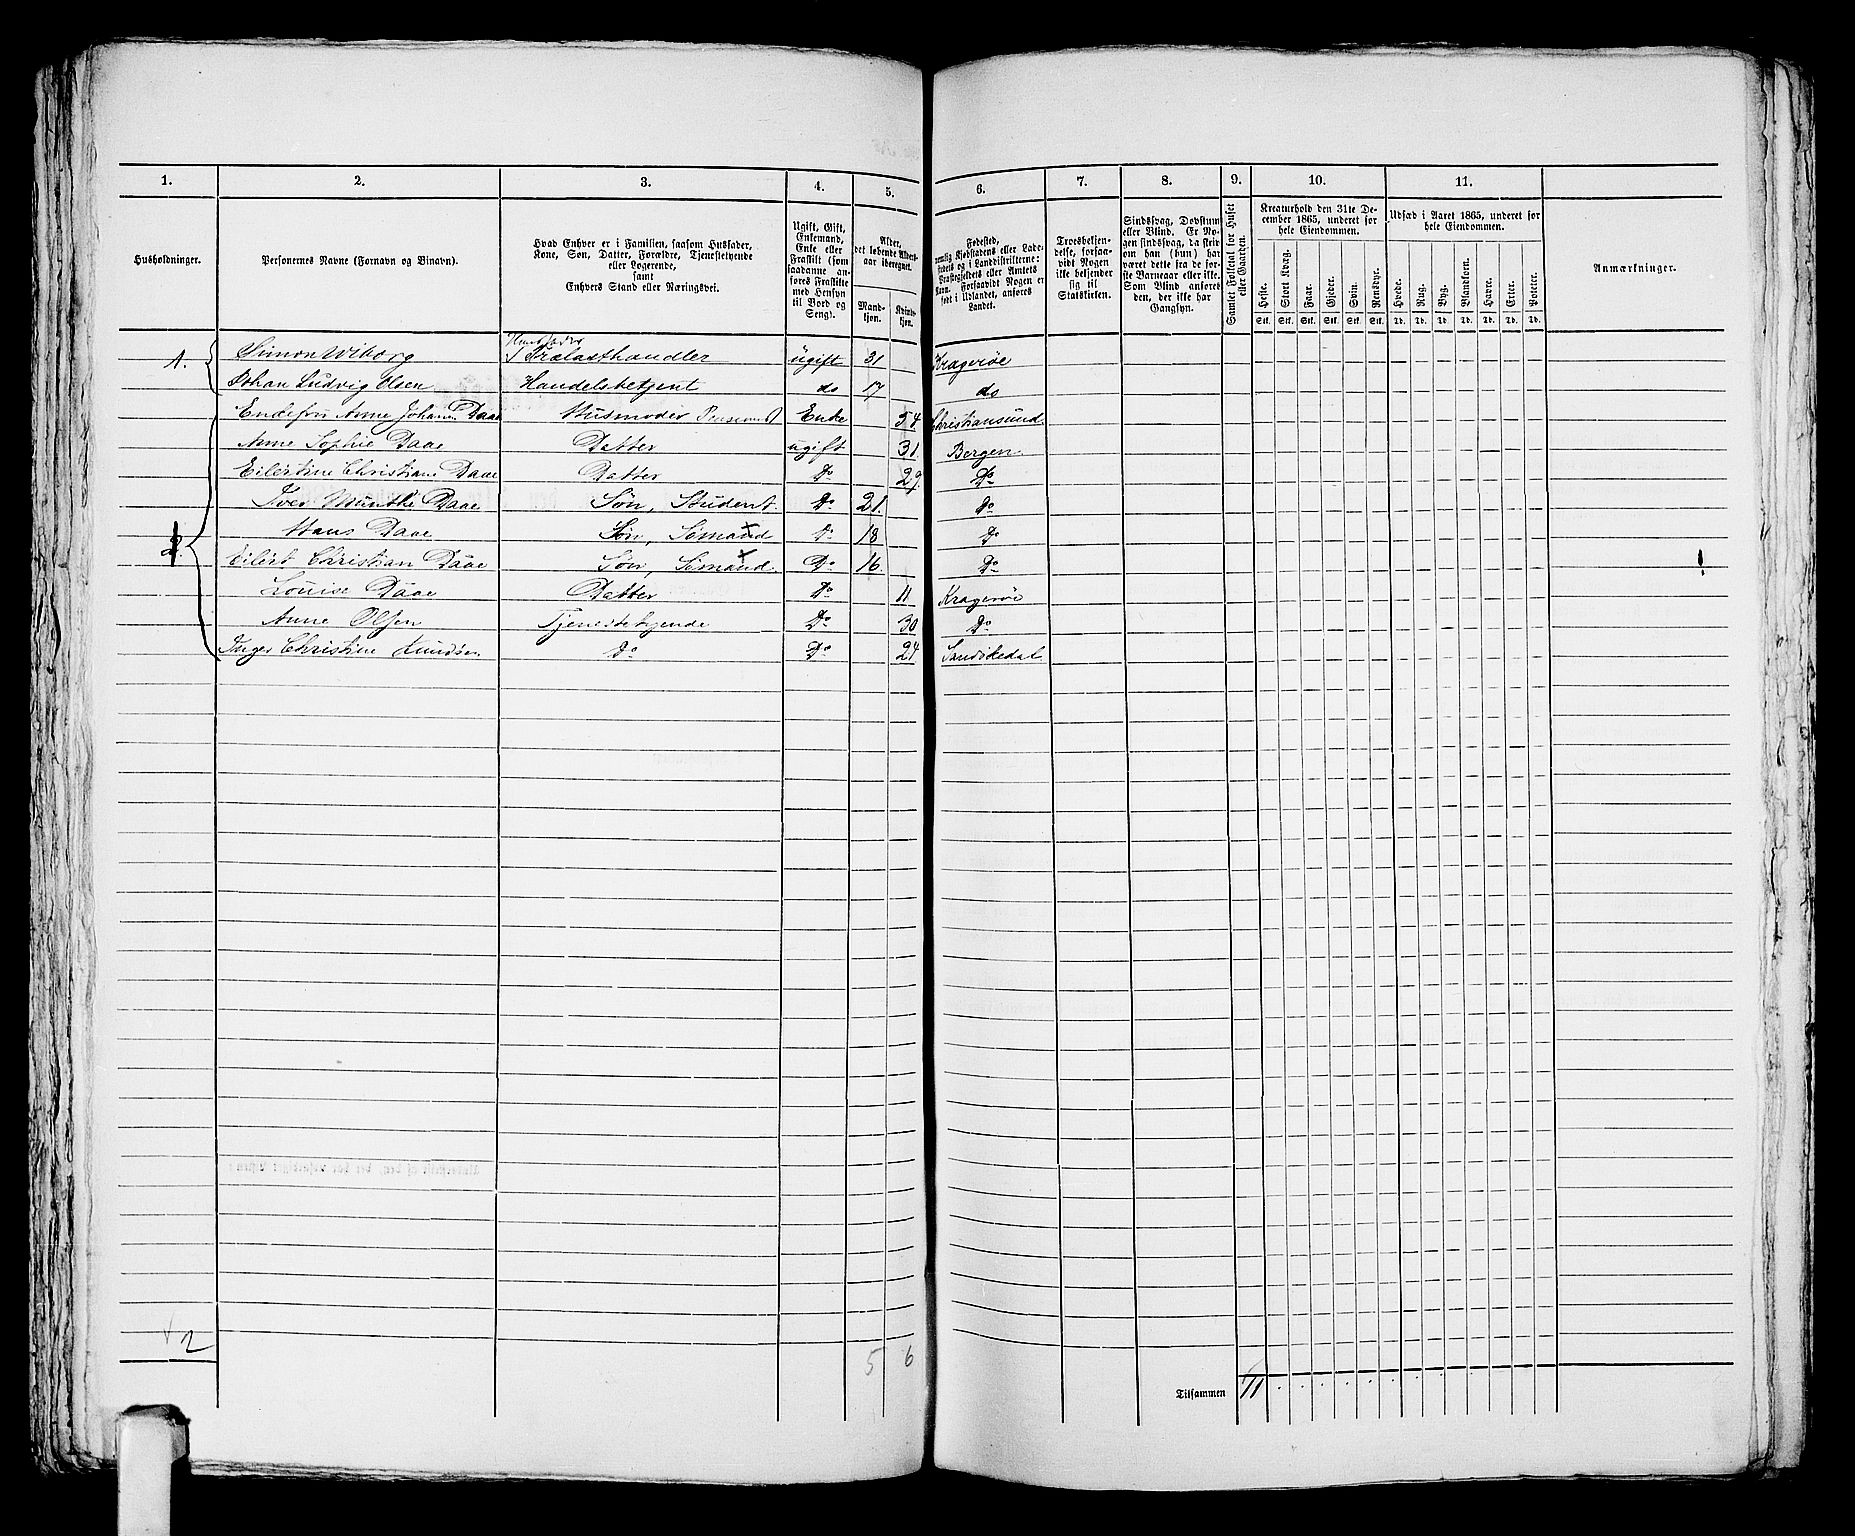 1. 2. 3. 4. 5. 6. 7. 8. 9. 10. 11.
Husholdninger.
Personernes Navne (Fornavn og Binavn).
Hvad Enhver er i Familien, saasom Husfader,
Kone, Søn, Datter, Forældre, Tjenestetyende
eller Logerende,
samt
Enhvers Stand eller Næringsvei.
Ugift, Gift,
Enkemand,
Enke eller
Fraskilt (som
saadanne an-
føres Fraskilte
med Hensyn
til Bord og
Seng).
Alder,
det løbende Alders-
aar iberegnet.
Mand-
kjøn.
Kvinde-
kjøn.
Fødested,
nemlig Kjøbstadens eller Lade-
stedets og i Landdistrikterne:
Præstegjeldets eller Amtets
Navn. Forsaavidt Nogen er
født i Udlandet, anføres
Landet.
Troesbekjen-
delse, forsaa-
vidt Nogen
ikke bekjender
sig til
Statskirken.
Sindssvag, Døvstum
eller Blind. Er No-
gen sindssvag, da skriv
om han (hun) har
været dette fra de før-
ste Barneaar eller ikke.
Som Blind anføres
den, der ikke har
Gangsyn.
Samlet Folketal for Huset
eller Gaarden.
Kreaturhold den 31te De-
cember 1865, underet for
hele Eiendommen.
Heste. Stort Kvæg. Faar. Gjeder. Svin. Rensdyr.
Stk. Stk. Stk. Stk. Stk. Stk.
Udsæd i Aaret 1865, underet for
hele Eiendommen.
Hvede. Rug. Byg. Blandkorn. Havre. Erter. Poteter.
Td. Td. Td. Td. Td. Td. Td.
Anmærkninger.
Husfader
1. Simon Wiborg Trælasthandler ugift 31 Kragerøe
Johan Ludvig Olsen Handelsbetjent do 17 do
2 Enkefru Anne Johanne Daae Husmoder Enke 54 Christiansund
Anne Sophie Daae Datter ugift 31. Bergen
Eilertine Christiane Daae Datter Do 29. Do
Iver Munthe Daae Søn, Student Do 21. Do
Hans Daae Søn, Sømand Do 18 Do
Eilert Christian Daae Søn, Sømand. Do 16. Do
Louise Daae Datter Do 11 Kragerøe
Anne Olsen Tjenestetyende Do 30 Do
Inger Christine Knudsen Do Do 24 Sandøkedal
2 5 6
Tilsammen 11